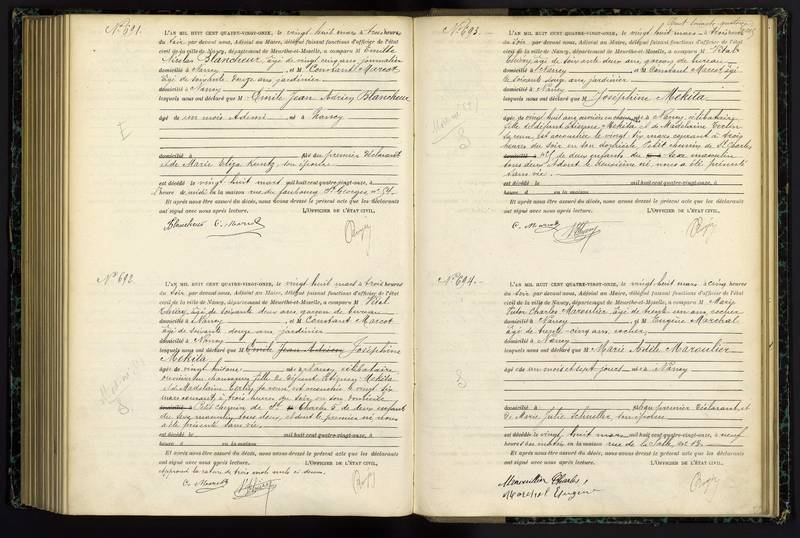 N° 691.
L'AN MIL HUIT CENT QUATRE-VINGT-ONZE, le vingt huit mars à trois heures
du soir par devant nous, Adjoint au Maire, délégué faisant fonctions d'officier de l'état
civil de la ville de Nancy, département de Meurthe-et-Moselle, a comparu M Emille
Nicolas Blancheur, âgé de vingt cinq ans, journalier
domicilié à Nancy, et M Constant Marcot
âgé de soixante douze ans jardinier
domicilié à Nancy
lesquels nous ont déclaré que M Emile Jean Adrien Blancheur
âgé de un mois et demi né à Nancy
domicilié à fils du premier déclarant
et de Marie Eliza Kuntz son épouse
est décédé le vingt huit mars mil huit cent quatre-vingt-onze, à
heure de midi en la maison rue du faubourg St Georges n° 54.
Et après nous être assuré du décès, nous avons dressé le présent acte que les déclarants
ont signé avec nous après lecture. L'OFFICIER DE L'ÉTAT CIVIL,
Blancheur C. Marcot
N° 692.
L'AN MIL HUIT CENT QUATRE-VINGT-ONZE, le vingt huit mars à trois heures
du soir, par devant nous, Adjoint au Maire, délégué faisant fonctions d'officier de l'état
civil de la ville de Nancy, département de Meurthe-et-Moselle, a comparu M Vital
âgé de soixante deux ans, garçon de bureau
domicilié à Nancy, et M Constant Marcot
âgé de soixante douze ans jardinier
domicilié à Nancy
lesquels nous ont déclaré que M Emile Jean Adrien Joséphine
Mekita
âgée de vingt huit ans née à Nancy, célibataire
fille de défunt Etienne Mekita
et de Madelaine
mars courant, à trois heures du soir, en son domicile
domicilié à Petit chemin de St Charles 5, de deux enfants
du sexe masculin, tous deux, et dont le premier né nous
a été présenté sans vie.
est décédé le mil huit cent quatre-vingt-onze, à
heure d en la maison
Et après nous être assuré du décès, nous avons dressé le présent acte que les déclarants
ont signé avec nous après lecture. L'OFFICIER DE L'ÉTAT CIVIL,
Approuvé la rature de trois mots nuls ci dessus.
C. Marcot
N° 693.
L'AN MIL HUIT CENT QUATRE-VINGT-ONZE, le vingt huit mars à trois heures
du soir par devant nous, Adjoint au Maire, délégué faisant fonctions d'officier de l'état
civil de la ville de Nancy, département de Meurthe-et-Moselle, a comparu M Vital
âgé de soixante deux ans, garçon de bureau
domicilié à Nancy, et M Constant Marcot, âgé
de soixante douze ans, jardinier
domicilié à Nancy
lesquels nous ont déclaré que M Joséphine Mekita
âgée de vingt huit ans, née à Nancy, célibataire
fille de défunt Etienne Mekita et de Madelaine
est accouchée le vingt six mars courant à trois
heures du soir en son domicile, Petit chemin de St Charles
domicilié à n° 5 de deux enfants du sexe masculin
tous deux, et dont le deuxième né, nous a été présenté
sans vie.
est décédé le mil huit cent quatre-vingt-onze, à
heure d en la maison
Et après nous être assuré du décès, nous avons dressé le présent acte que les déclarants
ont signé avec nous après lecture. L'OFFICIER DE L'ÉTAT CIVIL,
C. Marcot
N° 694.
L'AN MIL HUIT CENT QUATRE-VINGT-ONZE, le vingt huit mars à cinq heures
du soir par devant nous, Adjoint au Maire, délégué faisant fonctions d'officier de l'état
civil de la ville de Nancy, département de Meurthe-et-Moselle, a comparu M Marie
Charles Maroulier, âgé de trente un ans, cocher
domicilié à Nancy, et M Eugène Maréchal
âgé de trente-cinq ans, cocher,
domicilié à Nancy
lesquels nous ont déclaré que M Marie Adèle Maroulier
âgée de un mois et sept jours née à Nancy
domicilié à fille du premier déclarant et
de Marie Julie Schueller, son épouse
est décédée le vingt huit mars mil huit cent quatre-vingt-onze, à neuf
heures du matin en la maison rue de la
Et après nous être assuré du décès, nous avons dressé le présent acte que les déclarants
ont signé avec nous après lecture. L'OFFICIER DE L'ÉTAT CIVIL,
Charles
Marchal Eugène